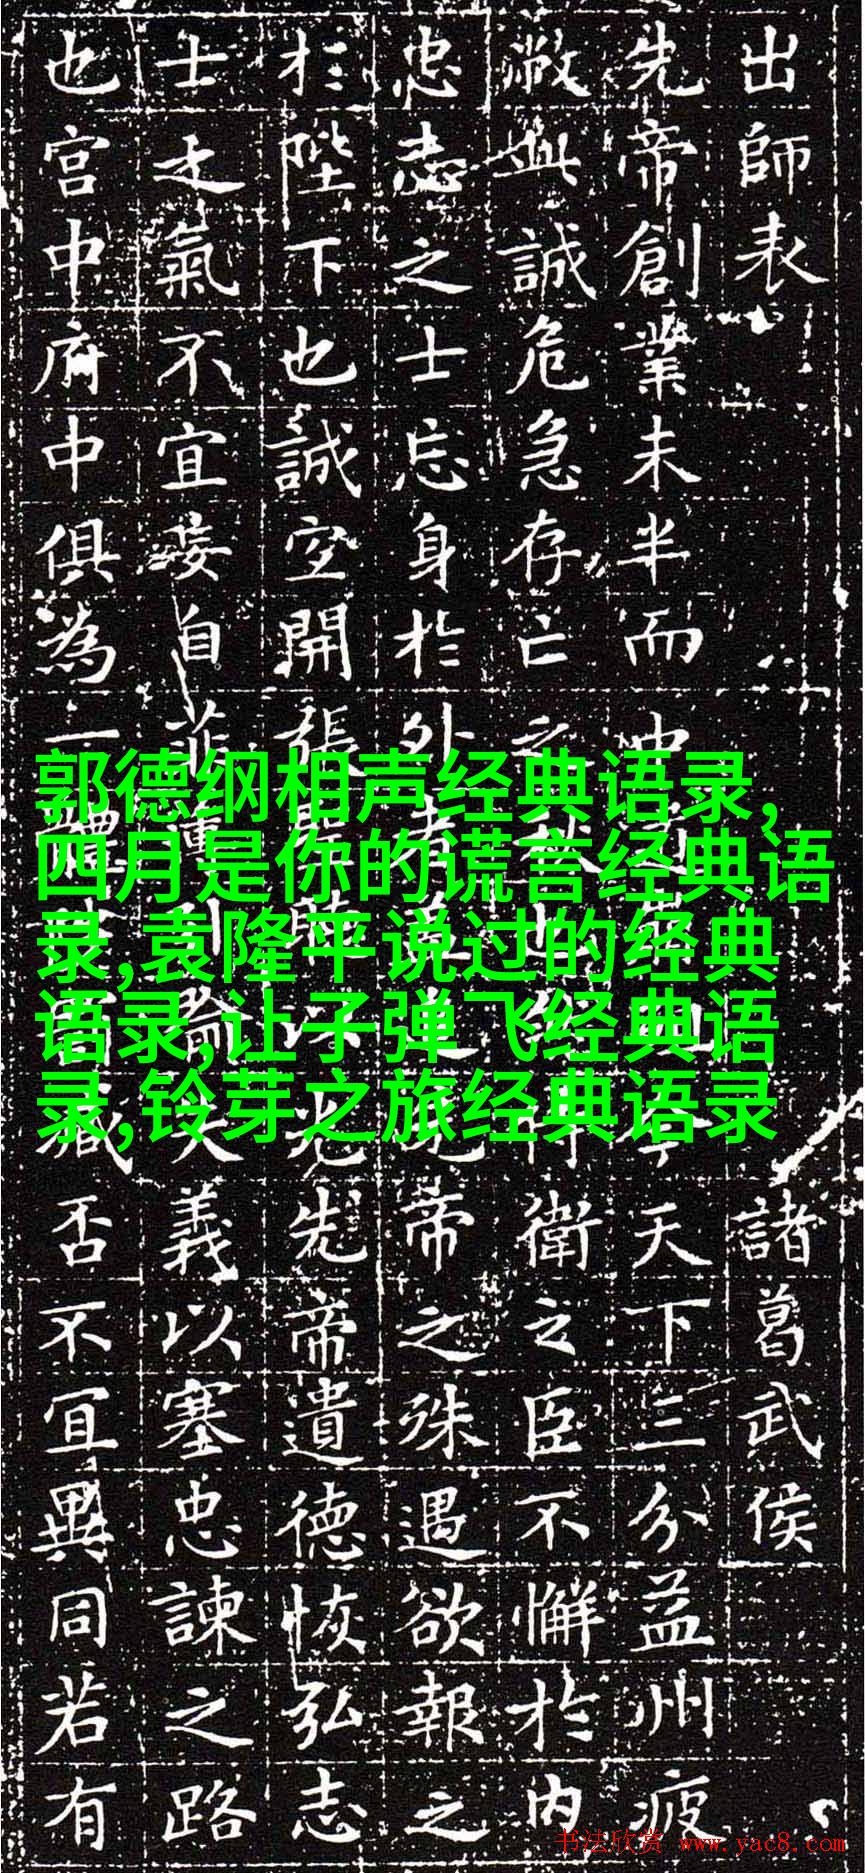 出師表 諸葛武侯
先帝創業未半而中今天下三分益州疲
敝此誠危急存亡之秋也侍衛之臣不懈於内
忠志之士忘身於外者追先帝之殊遇欲報之
於陛下也誠宜開張聖聽以光先帝遺德恢弘志
士之氣不宜妄自菲薄引喻失義以塞忠諫之路
也宮中府中俱為一體陟罰臧否不宜異同若有
郭德纲相声经典语录,
四月是你的谎言经典语
录,袁隆平说过的经典
语录,让子弹飞经典语
录,铃芽之旅经典语录
书法欣赏 www.yac8.com